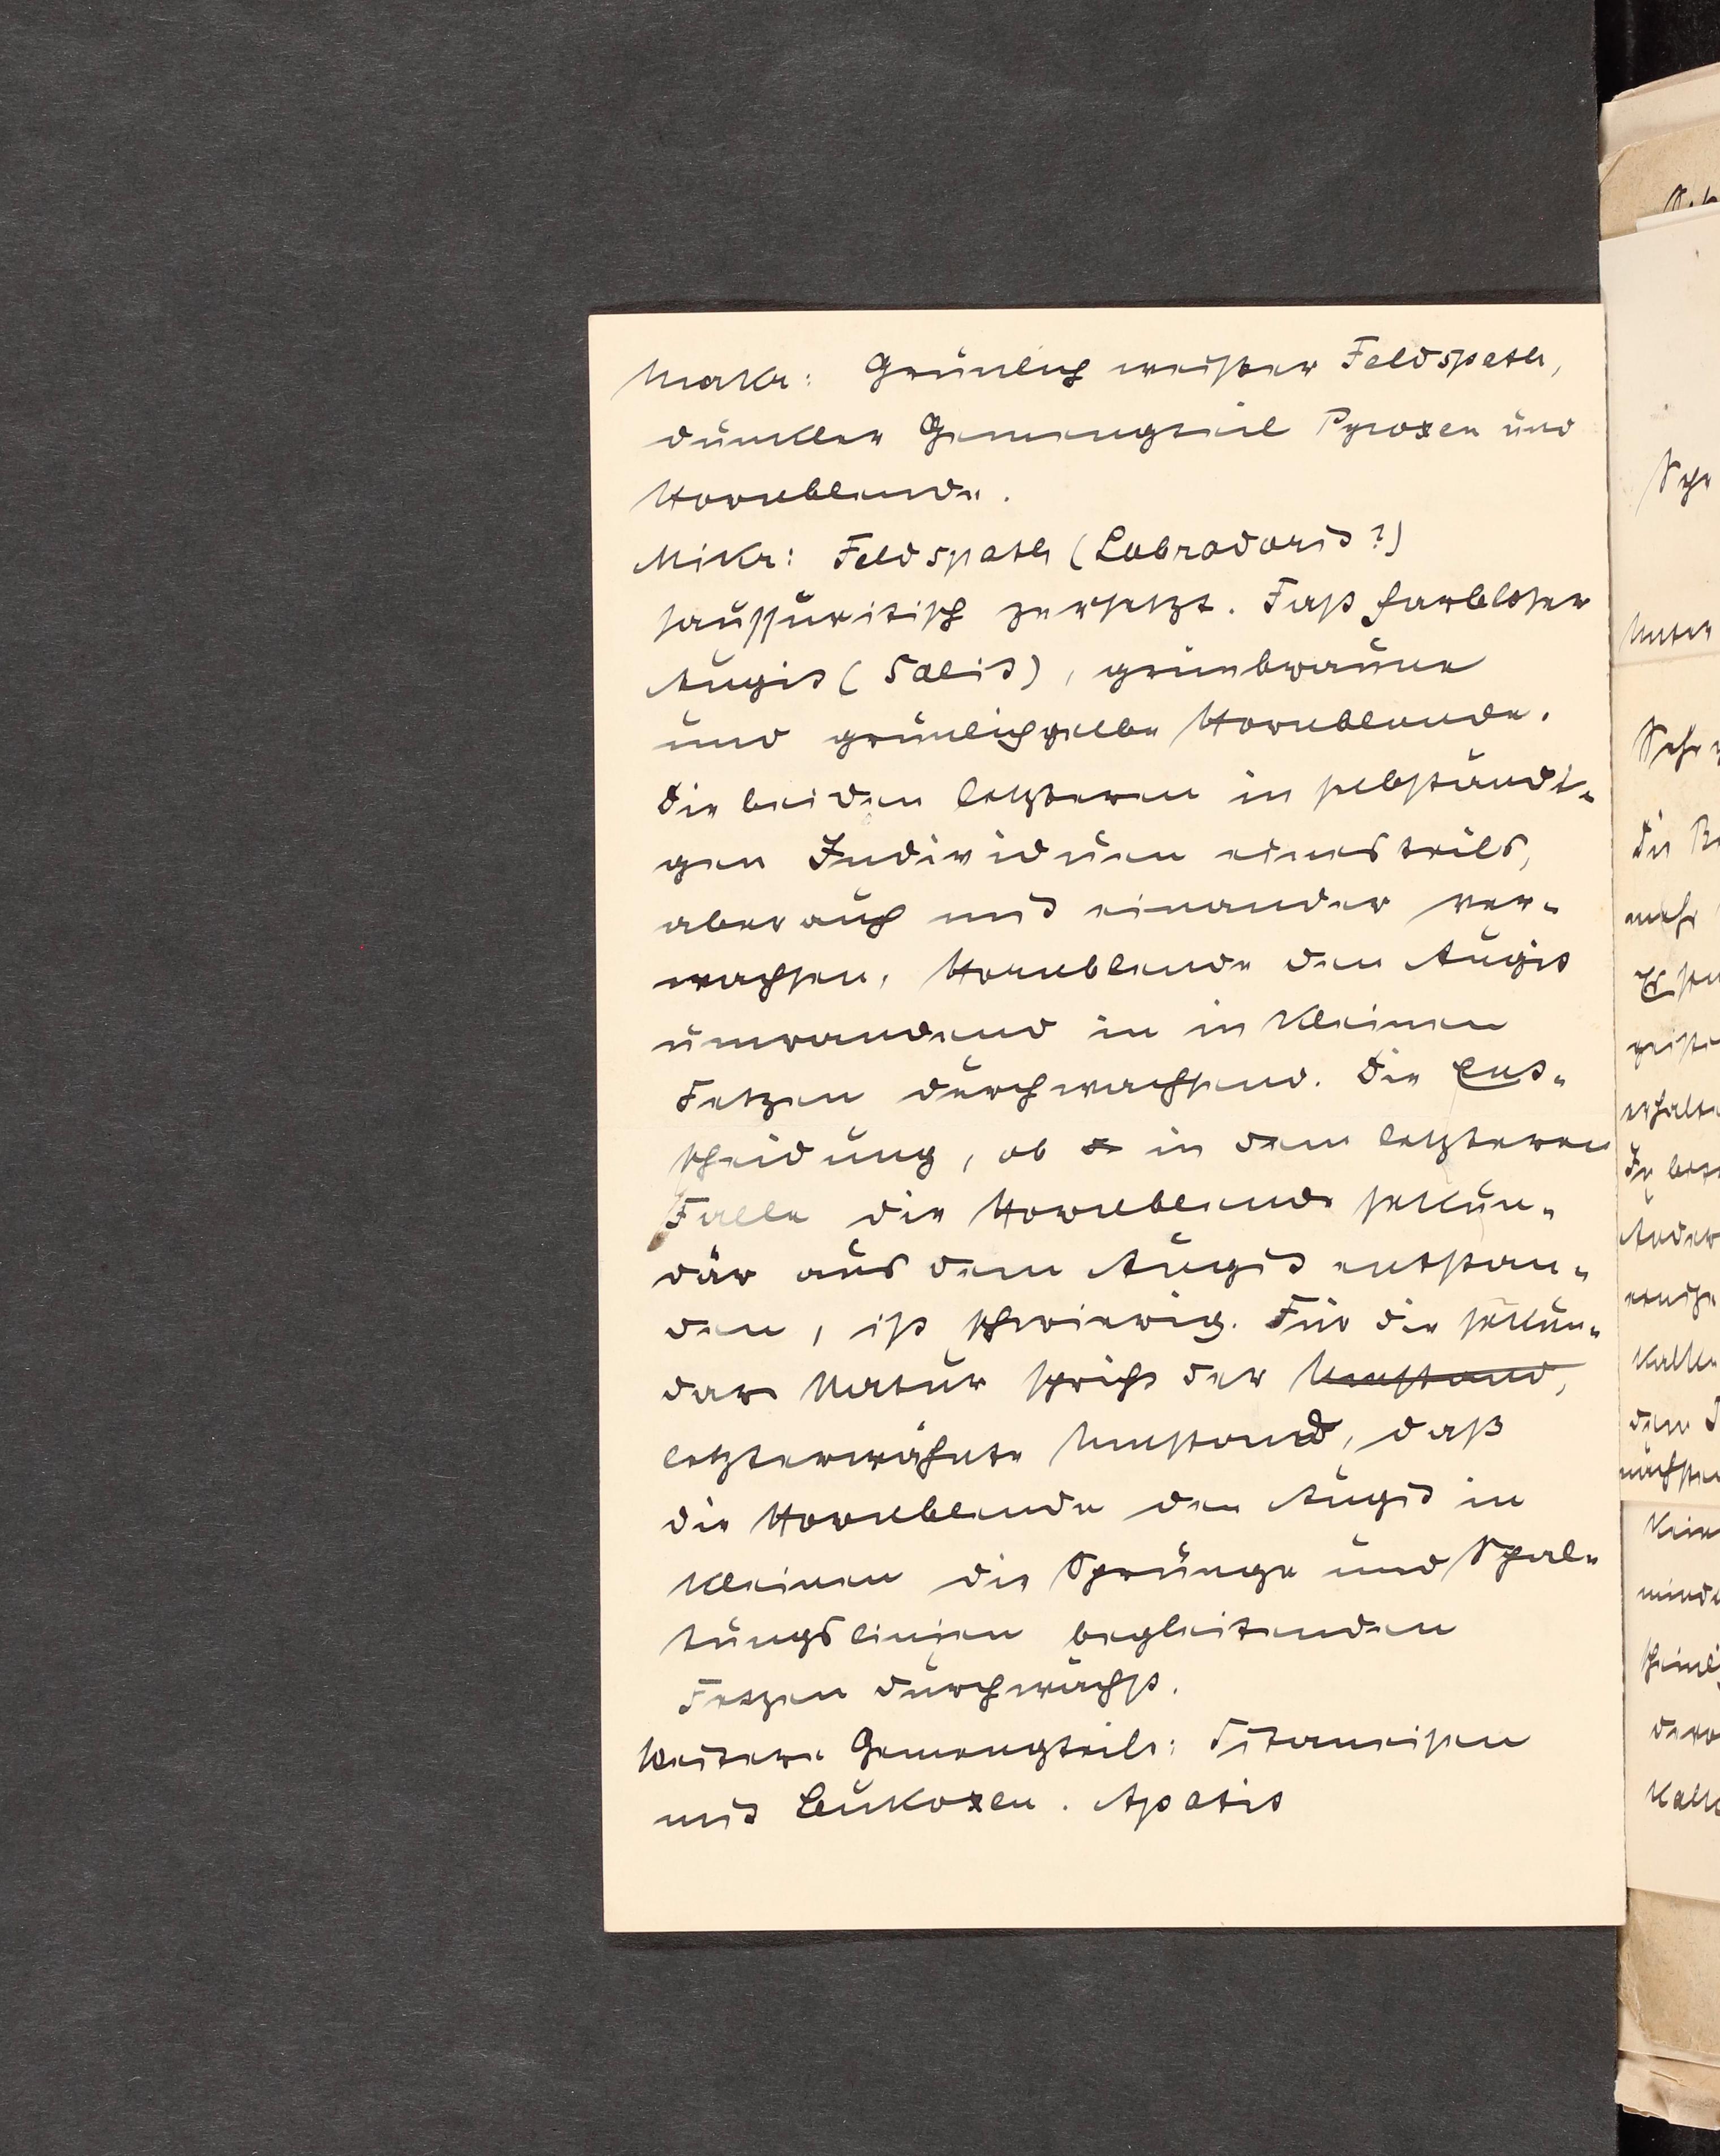 Makr: Grünlich weißer Feldspath,
dunkler Gemengteil Pyroxen und
Hornblende.
Mikr: Feldspath (Labradorit?)
saussuritisch zersetzt. Fast farbloser
Augit (Salit), grünbraune
und grünlichgelbe Hornblende.
Die beiden letzteren in selbständi-
gen Individuen einesteils,
aber auch mit einander ver-
wachsen, Hornblende den Augit
umrandend in in kleinen
Fetzen durchwachsend. Die Ent-
scheidung, ob in dem letzteren
Falle die Hornblende sekun-
där aus dem Augit entstan-
den, ist schwierig. Für die sekun-
däre Natur spricht der Umstand,
letzterwähnte Umstand, daß
die Hornblende den Augit in
kleinen die Sprünge und Spal-
tungslinien begleitenden
Fetzen durchwächst.
Weitere Gemengteile: Titaneisen
mit Leukoxen. Apatit